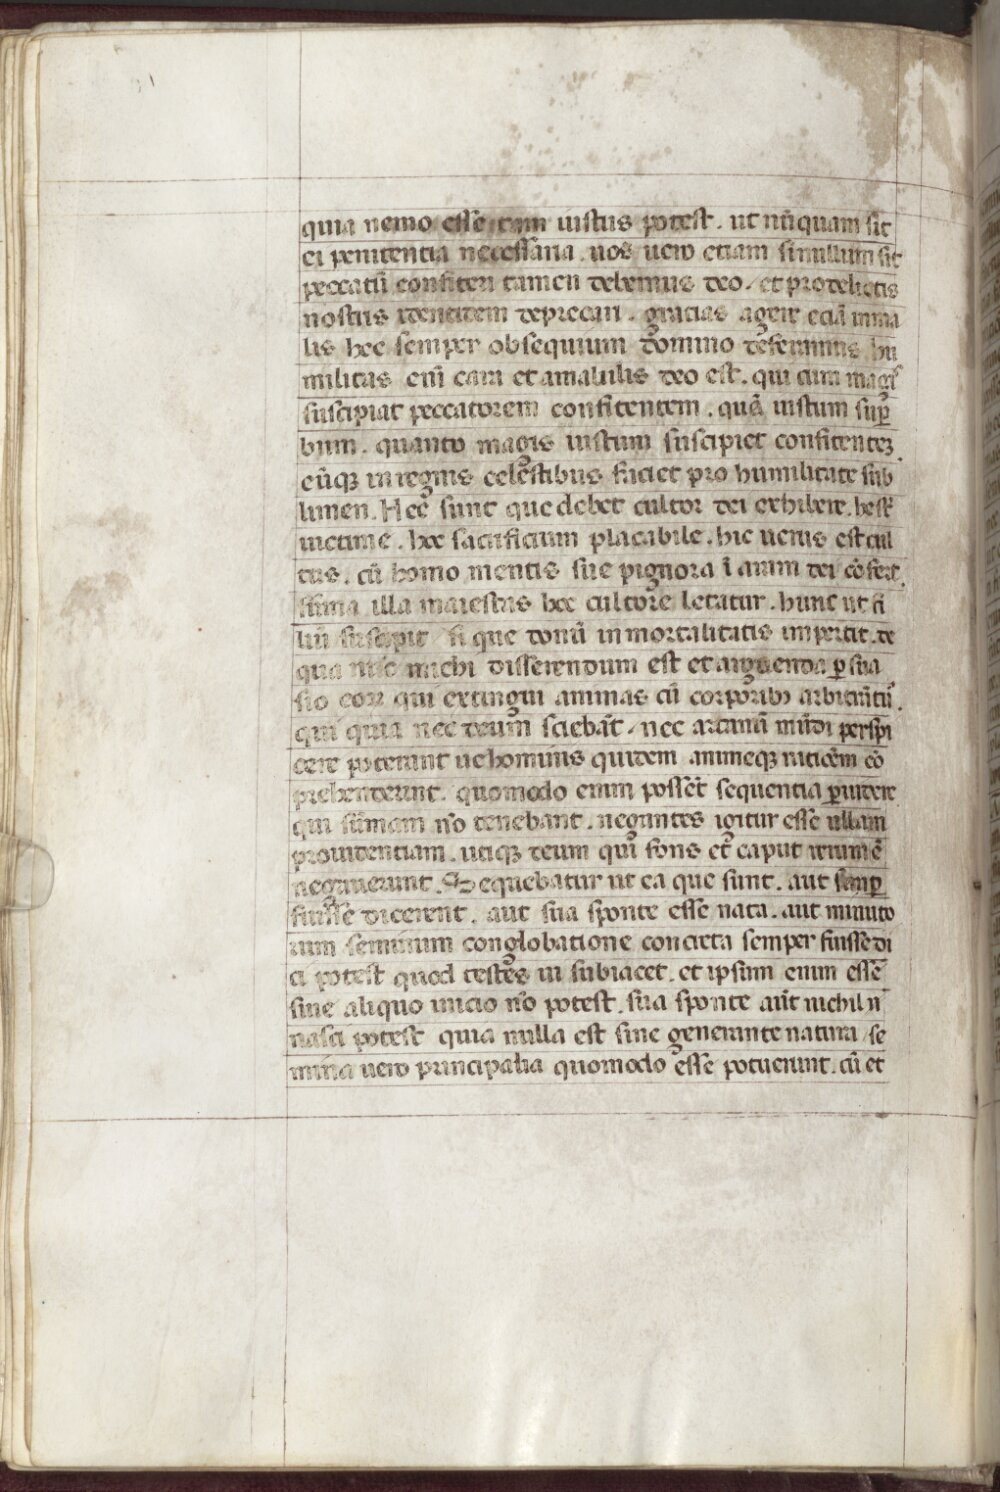 quia nemo esse tam iustus potest . ut nūquam sit
ei penitentia necessaria . nos uero etiam si nullum sit
peccatū confiteri tamen debemus deo . et pro delictis
nostris identidem deprecari . gracias agere eciā in ma
lis hec semper obsequium domino deferimus hu
militas eni cara et amabilis deo est . qui cum magis
suscipiat peccatorem confitentem . quā iustum supͥ
bum . quanto magis iustum suscipiet confitenteꝫ
eūqꝫ in regnis celestibus faciet pro humilitate sub
limen . Hec sunt que debet cultor dei exhibere . hee
uictime . hoc sacrificium placabile . hic uerus est cul
tus . cū homo mentis sue pignora ī aram dei cōfert .
illa maiestas hoc cultore letatur . hunc ut fi
liū suscipit que donū inmortalitatis impertit . de
qua nūc michi disserendum est et arguenda ꝑsua
sio eoꝝ qui extingui animas cū corporibꝫ arbitrātur .
qui quia nec deum sciebāt . nec arcanū mūdi perspi
cere poterant ne hominis quidem animeqꝫ rationem cō
prehenderunt . quomodo enim possēt sequentia ꝑuidere
qui sūmam nō tenebant . negantes igitur esse ullam
prouidentiam . utiqꝫ deum qui fons et caput rerum ē
negauerunt . Sequebatur ut ea que sunt . aut semꝑ
fuisse dicerent . aut sua sponte esse nata . aut minuto
rum seminum conglobatione concreta semper fuisse di
ci potest quod testes ui subiacet . et ipsum enim esse
sine aliquo inicio nō potest . sua sponte aut nichil n
nasci potest quia nulla est sine generante natura se
mina uero principalia quomodo esse potuerunt . cū et